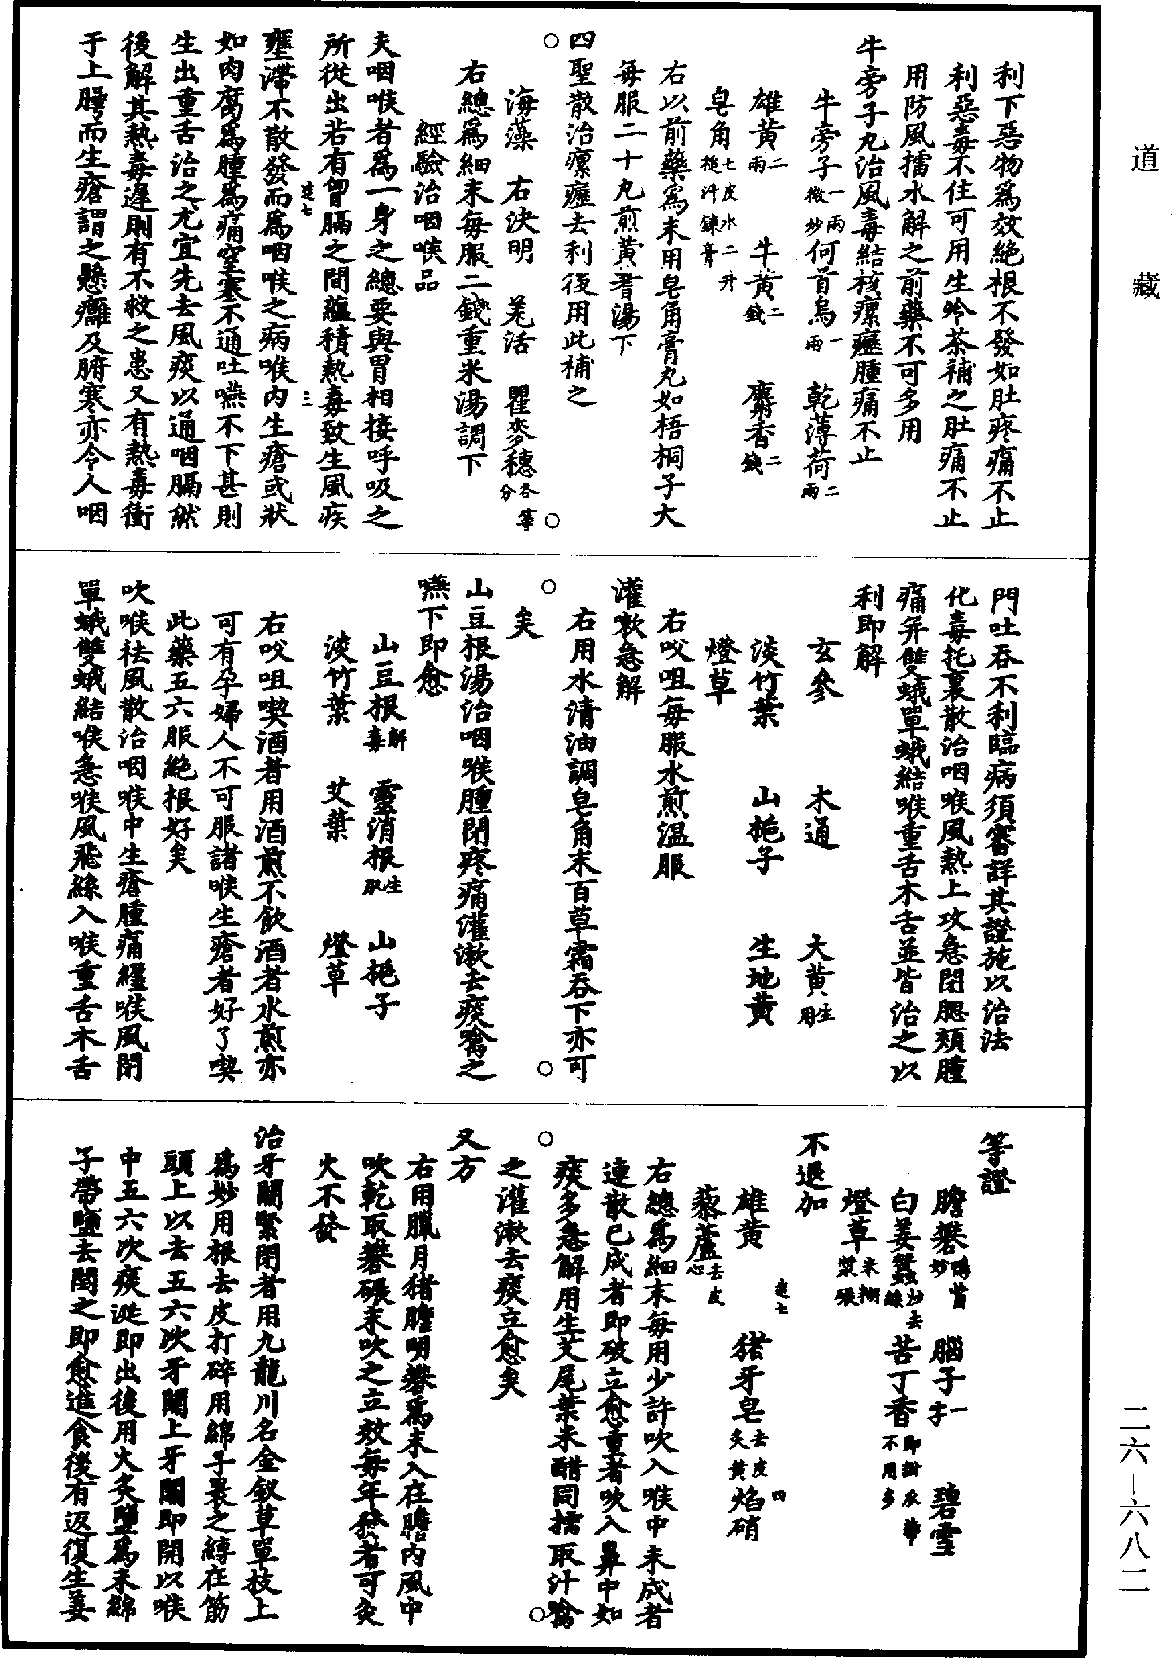 道藏
利下惡物爲效絶根不發如肚疼痛不止
利惡毒不住可用生蛤茶補之肚痛不止
用防風擂水解之前藥不可多用
牛旁子丸治風毒結核瘰癧腫痛不止
牛旁子一兩微炒 何首烏一兩 乾薄荷二兩
雄黄二兩 牛黄二錢 麝香二錢
皂角七皮水二升搥汁鍊膏
右以前藥爲末用皂角膏丸如梧桐子大
每服二十丸煎黄耆湯下
四聖散治瘰癧去利後用此補之
海藻 右決明 羌活 瞿麥穗各等分
右總爲細末每服二錢重米湯調下
經驗治咽喉品
夫咽喉者爲一身之總要與胃相接呼吸之
所從出若有胷膈之間蘊積熱毒致生風疾
壅滯不散發而爲咽喉之病喉内生瘡或狀
如肉腐爲腫爲痛窒塞不通吐嚥不下甚則
生出重舌治之尤宜先去風痰以通咽膈然
後解其熱毒遲則有不救之患又有熱毒衝
于上腭而生瘡謂之懸癰及腑寒亦令人咽
門吐吞不利臨病須審詳其證施以治法
化毒托裏散治咽喉風熱上攻急閉腮頰腫
痛并雙蛾單蛾結喉重舌木舌並皆治之以
利即解
玄參 木通 大黄生用
淡竹葉 山梔子 生地黄
燈草
右㕮咀每服水煎温服
灌漱急解
右用水清油調皂角末百草霜吞下亦可
矣
山豆根湯治咽喉腫閉疼痛灌漱去痰噙之
嚥下即愈
山豆根解毒 霊消根生肌 山梔子
淡竹葉 艾葉 燈草
右㕮咀喫酒者用酒煎不飲酒者水煎亦
可有孕婦人不可服諸喉生瘡者好了喫
此藥五六服絶根好矣
吹喉祛風散治咽喉中生瘡腫痛纏喉風閉
單蛾雙蛾結喉急喉風飛絲入喉重舌木舌
等證
膽礬鴨嘴炒 腦子一字 碧雪
白姜蠶炒去絲 苦丁香
燈草米糊漿碾
不退加
雄黄 猪牙皂去皮炙黄 焰硝
藜蘆去皮心
右總爲細末每用少許吹入喉中未成者
連散已成者即破立愈重者吹入鼻中如
痰多急解用生艾尾葉米醋同擂取汁噙
之灌漱去痰立愈矣
又方
右用臘月猪膽明礬爲末入在膽内風中
吹乾取礬碾末吹之立效每年發者可灸
火不發
治牙關緊閉者用九龍川名金釵草單枝上
爲妙用根去皮打碎用綿子裹之縛在筋
頭上以去五六次牙關上牙關即開以喉
中五六次痰涎即出後用火炙鹽爲末綿
子帶鹽去關之即愈進食後有返復生姜
二六—六八二